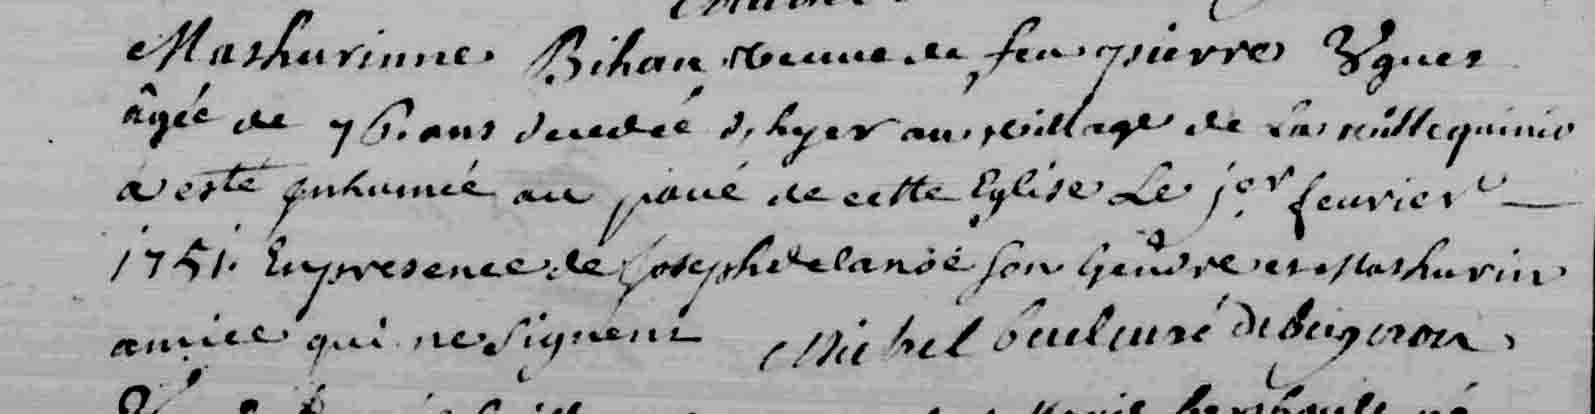 Mathurinne Bihan veuue de feu pierre
âgée de 76. ans decedée d'hyer au village de La ville quinio
a esté inhumée au paué de cette Eglise Le jer feurier
1751. En presence de Joseph delanoë son Gendre et Mathurin
amice qui ne signent Michel de Beignon